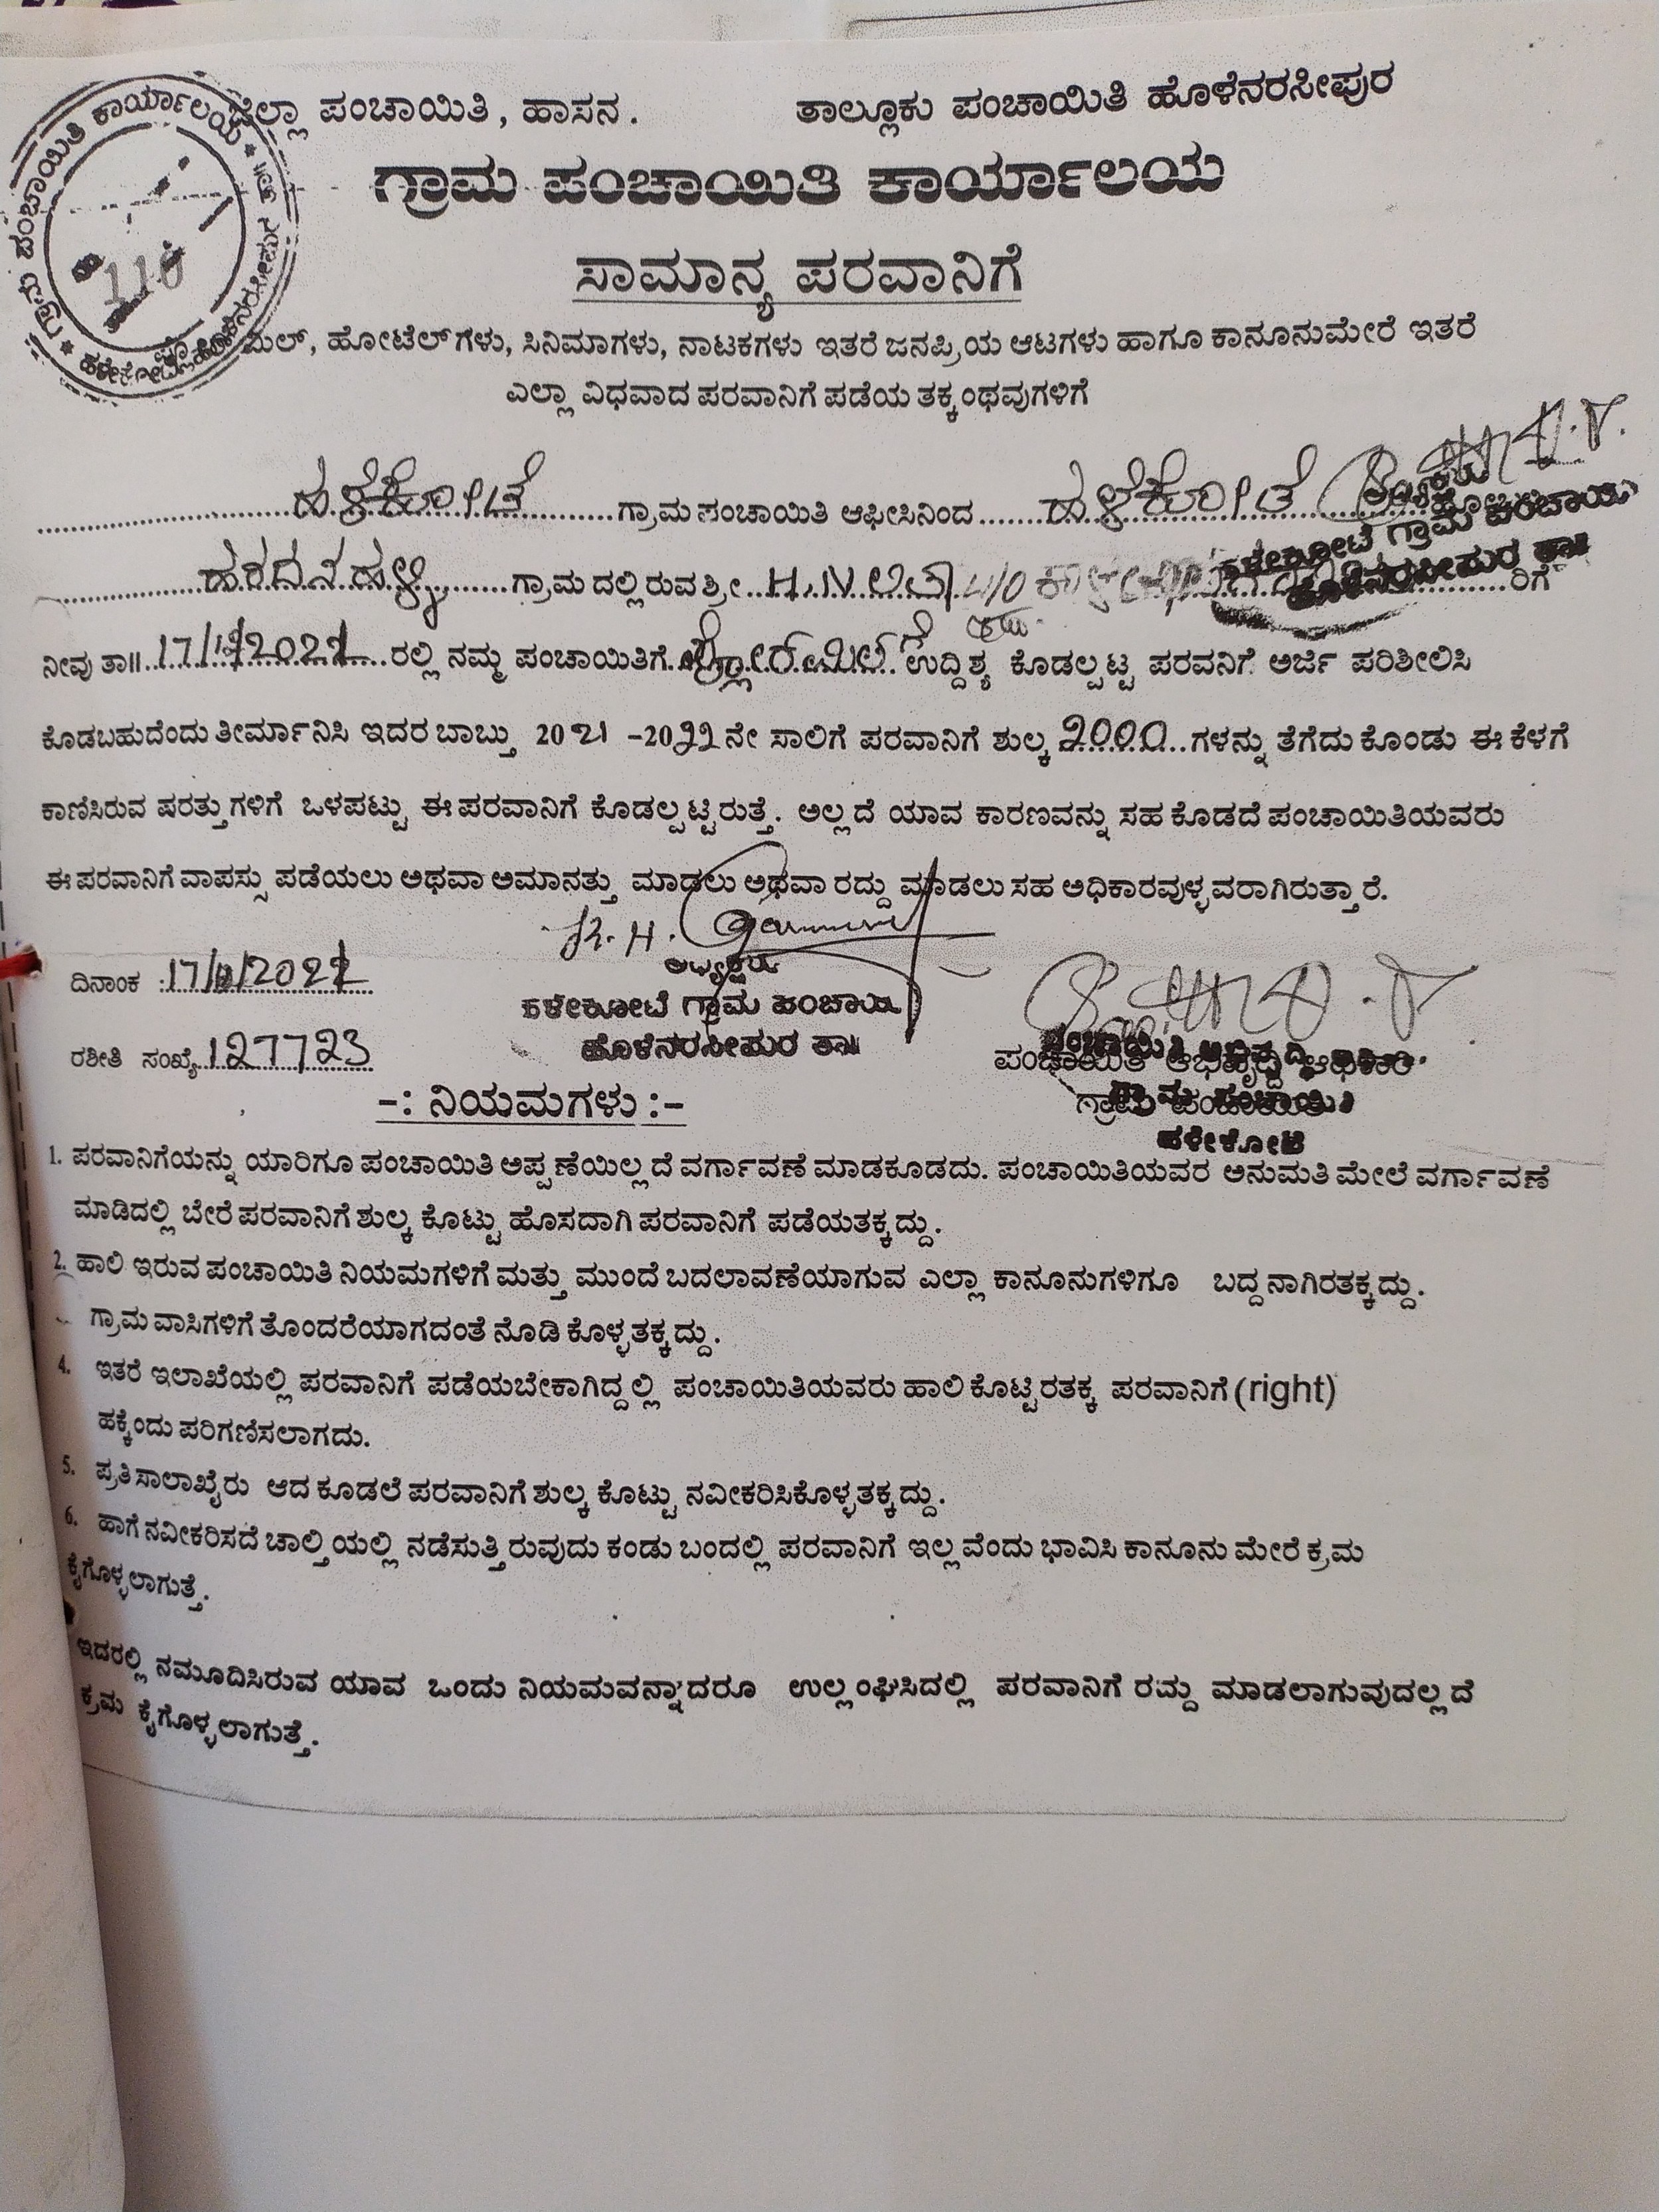 ಜಿಲ್ಲಾ ಪಂಚಾಯಿತಿ, ಹಾಸನ. ತಾಲ್ಲೂಕು ಪಂಚಾಯಿತಿ ಹೊಳೆನರಸೀಪುರ
ಗ್ರಾಮ ಪಂಚಾಯಿತಿ ಕಾರ್ಯಾಲಯ
ಗ್ರಾಮ ಪಂಚಾಯಿತಿ ಕಾರ್ಯಾಲಯ
ಸಾಮಾನ್ಯ ಪರವಾನಿಗೆ
ಮಿಲ್, ಹೋಟೆಲ್‌ಗಳು, ಸಿನಿಮಾಗಳು, ನಾಟಕಗಳು ಇತರೆ ಜನಪ್ರಿಯ ಆಟಗಳು ಹಾಗೂ ಕಾನೂನುಮೇರೆ ಇತರೆ
ಎಲ್ಲಾ ವಿಧವಾದ ಪರವಾನಿಗೆ ಪಡೆಯ ತಕ್ಕಂಥವುಗಳಿಗೆ
ಹಳೆಕೋಟೆ ಗ್ರಾಮಪಂಚಾಯಿತಿ ಆಫೀಸಿನಿಂದ ಹಳೆಕೋಟೆ
ಹರದನಹಳ್ಳಿ ಗ್ರಾಮದಲ್ಲಿರುವ ಶ್ರೀ H.N ರಿಗೆ
ನೀವು ತಾ॥ 17/ /2021 ರಲ್ಲಿ ನಮ್ಮ ಪಂಚಾಯಿತಿಗೆ ಫ್ಲೋರ್ ಮಿಲ್ ಗೆ ಉದ್ದಿಶ್ಯ ಕೊಡಲ್ಪಟ್ಟ ಪರವನಿಗೆ ಅರ್ಜಿ ಪರಿಶೀಲಿಸಿ
ಕೊಡಬಹುದೆಂದು ತೀರ್ಮಾನಿಸಿ ಇದರ ಬಾಬ್ತು 2021 -2022 ನೇ ಸಾಲಿಗೆ ಪರವಾನಿಗೆ ಶುಲ್ಕ 2000 ಗಳನ್ನು ತೆಗೆದುಕೊಂಡು ಈ ಕೆಳಗೆ
ಕಾಣಿಸಿರುವ ಷರತ್ತುಗಳಿಗೆ ಒಳಪಟ್ಟು ಈ ಪರವಾನಿಗೆ ಕೊಡಲ್ಪಟ್ಟಿರುತ್ತೆ. ಅಲ್ಲದೆ ಯಾವ ಕಾರಣವನ್ನು ಸಹ ಕೊಡದೆ ಪಂಚಾಯಿತಿಯವರು
ಈ ಪರವಾನಿಗೆ ವಾಪಸ್ಸು ಪಡೆಯಲು ಅಥವಾ ಅಮಾನತ್ತು ಮಾಡಲು ಅಥವಾ ರದ್ದು ಮಾಡಲು ಸಹ ಅಧಿಕಾರವುಳ್ಳವರಾಗಿರುತ್ತಾರೆ.
ದಿನಾಂಕ : 17/ /2021
ಅಧ್ಯಕ್ಷರು
ಹಳೇಕೋಟೆ ಗ್ರಾಮ ಪಂಚಾಯಿ
ಹೊಳೆನರಸೀಪುರ ತಾ॥
ರಶೀತಿ ಸಂಖ್ಯೆ 127723
ಪಂಚಾಯಿತಿ ಅಭಿವೃದ್ಧಿ ಅಧಿಕಾರಿ
ಗ್ರಾಮ ಪಂಚಾಯಿತಿ
ಹಳೇಕೋಟೆ
-: ನಿಯಮಗಳು :-
1. ಪರವಾನಿಗೆಯನ್ನು ಯಾರಿಗೂ ಪಂಚಾಯಿತಿ ಅಪ್ಪಣೆಯಿಲ್ಲದೆ ವರ್ಗಾವಣೆ ಮಾಡಕೂಡದು. ಪಂಚಾಯಿತಿಯವರ ಅನುಮತಿ ಮೇಲೆ ವರ್ಗಾವಣೆ
ಮಾಡಿದಲ್ಲಿ ಬೇರೆ ಪರವಾನಿಗೆ ಶುಲ್ಕ ಕೊಟ್ಟು ಹೊಸದಾಗಿ ಪರವಾನಿಗೆ ಪಡೆಯತಕ್ಕದ್ದು.
2. ಹಾಲಿ ಇರುವ ಪಂಚಾಯಿತಿ ನಿಯಮಗಳಿಗೆ ಮತ್ತು ಮುಂದೆ ಬದಲಾವಣೆಯಾಗುವ ಎಲ್ಲಾ ಕಾನೂನುಗಳಿಗೂ ಬದ್ದನಾಗಿರತಕ್ಕದ್ದು.
ಗ್ರಾಮವಾಸಿಗಳಿಗೆ ತೊಂದರೆಯಾಗದಂತೆ ನೊಡಿ ಕೊಳ್ಳತಕ್ಕದ್ದು.
4. ಇತರೆ ಇಲಾಖೆಯಲ್ಲಿ ಪರವಾನಿಗೆ ಪಡೆಯಬೇಕಾಗಿದ್ದಲ್ಲಿ ಪಂಚಾಯಿತಿಯವರು ಹಾಲಿ ಕೊಟ್ಟಿರತಕ್ಕ ಪರವಾನಿಗೆ (right)
ಹಕ್ಕೆಂದು ಪರಿಗಣಿಸಲಾಗದು.
5. ಪ್ರತಿಸಾಲಾಖೈರು ಆದ ಕೂಡಲೆ ಪರವಾನಿಗೆ ಶುಲ್ಕ ಕೊಟ್ಟು ನವೀಕರಿಸಿಕೊಳ್ಳತಕ್ಕದ್ದು.
6. ಹಾಗೆ ನವೀಕರಿಸದೆ ಚಾಲ್ತಿಯಲ್ಲಿ ನಡೆಸುತ್ತಿರುವುದು ಕಂಡು ಬಂದಲ್ಲಿ ಪರವಾನಿಗೆ ಇಲ್ಲವೆಂದು ಭಾವಿಸಿ ಕಾನೂನು ಮೇರೆ ಕ್ರಮ
ಕೈಗೊಳ್ಳಲಾಗುತ್ತೆ.
ಇದರಲ್ಲಿ ನಮೂದಿಸಿರುವ ಯಾವ ಒಂದು ನಿಯಮವನ್ನಾದರೂ ಉಲ್ಲಂಘಿಸಿದಲ್ಲಿ ಪರವಾನಿಗೆ ರದ್ದು ಮಾಡಲಾಗುವುದಲ್ಲದೆ
ಕ್ರಮ ಕೈಗೊಳ್ಳಲಾಗುತ್ತೆ.